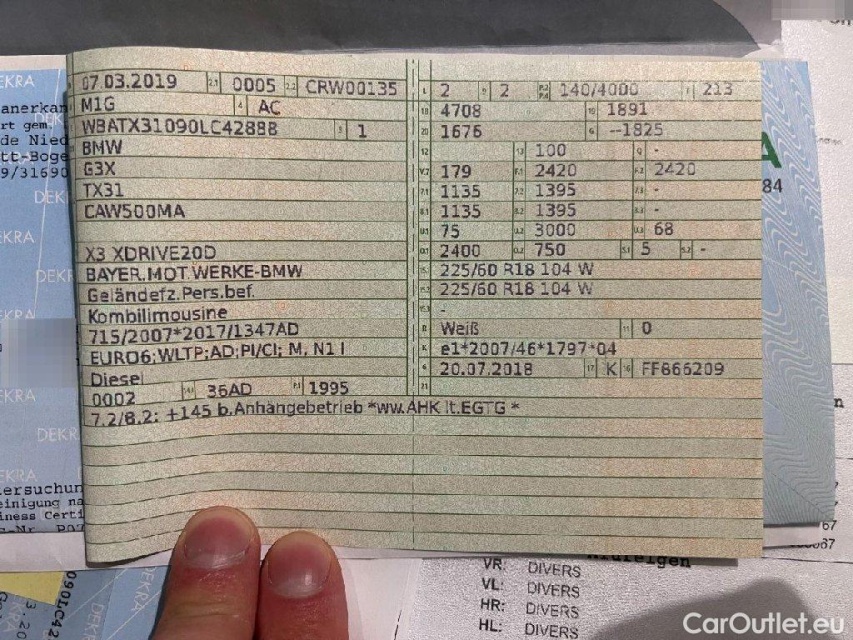 07.03.2019 2.1 0005 2.2 CRW00135
M1G 4 AC
WBATX31090LC42888 3 1
BMW
G3X
TX31
CAW500MA
X3 XDRIVE20D
BAYER.MOT.WERKE-BMW
Geländefz.Pers.bef.
Kombilimousine
715/2007*2017/1347AD
EURO6;WLTP;AD:PI/CI; M, N1 I
Diesel
0002 36AD 1995
7.2/8.2: +145 b.Anhängebetrieb *ww.AHK lt.EGTG *
2 2 140/4000 213
4708 1891
1676 --1825
100 -
179 2420 2420
1135 1395 -
1135 1395 -
75 3000 68
2400 750 5 -
225/60 R18 104 W
225/60 R18 104 W
-
Weiß 0
e1*2007/46*1797*04
20.07.2018 K FF866209
EKRA
anerkan
rt gem
de Nied
tt-Boge
9/31690
DEKRA
ersuchun
einigung na
iness Certi
A
84
VR: DIVERS
VL: DIVERS
HR: DIVERS
HL: DIVERS
CarOutlet.eu